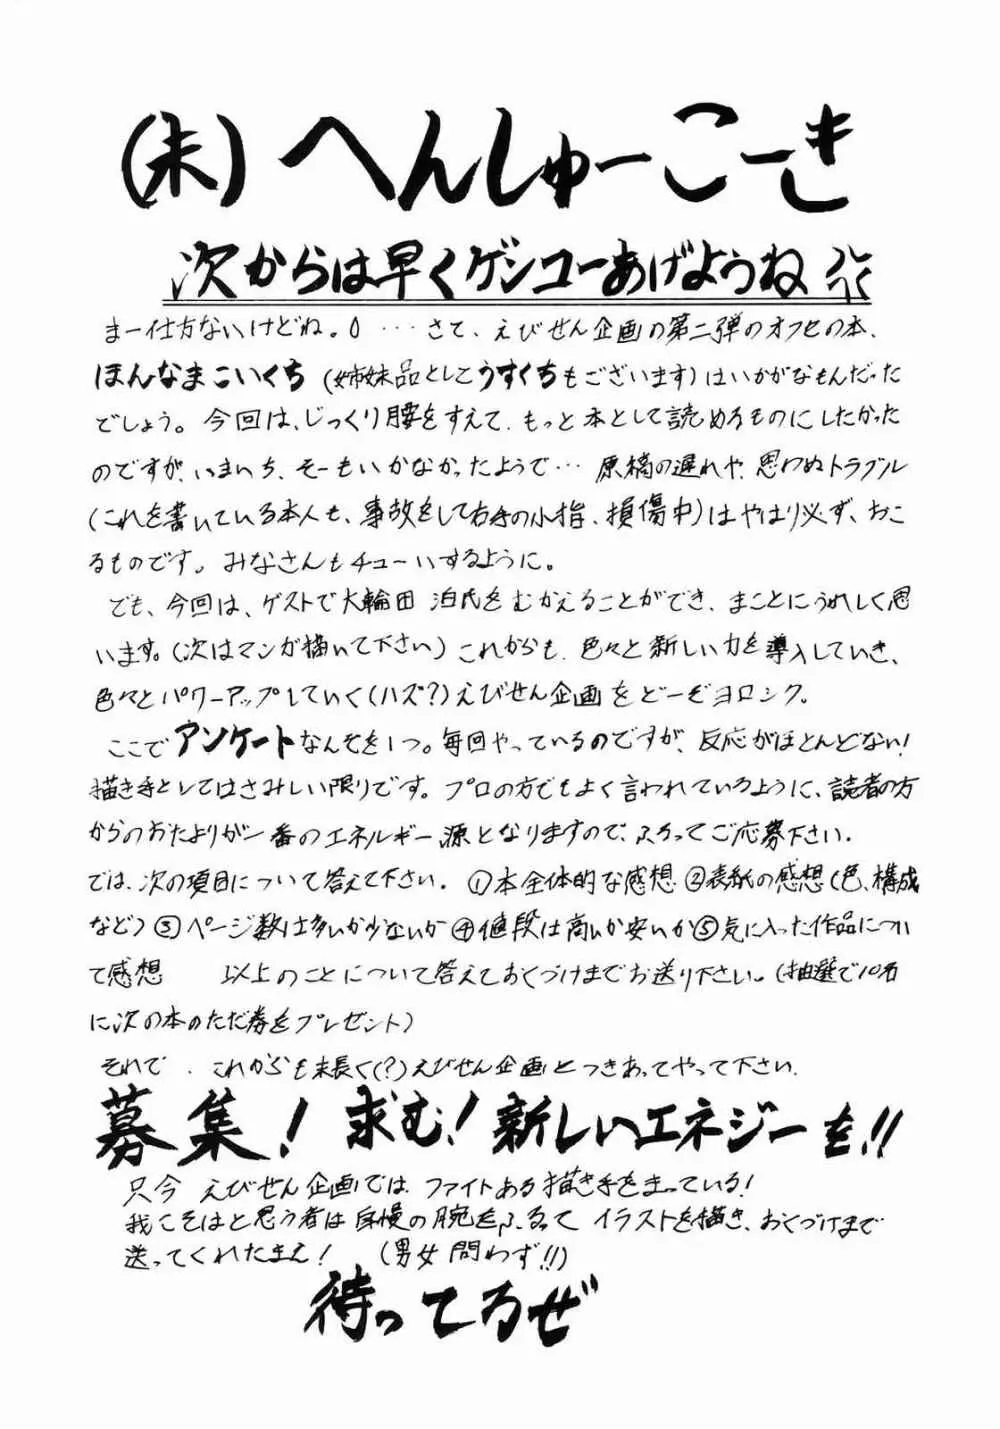 (朱)へんしゅーこーき
次からは早くゲンコーあげようね
まー仕方ないけどね。 … さて、えびせん企画の第二弾のオフセの本、
ほんなまこいくち(姉妹品としてうすくちもございます)はいかがなもんだった
でしょう。今回は、じっくり腰をすえて、もっと本として読めるものにしたかった
のですが、いまいち、そーもいかなかったようで… 原稿の遅れや、思わぬトラブル
(これを書いている本人も、事故をして右手の小指、損傷中)はやはり必ず、おこ
るものです。みなさんもチューいするように。
でも、今回は、ゲストで大輪田 泊氏をむかえることができ、まことにうれしく思
います。(次はマンガ描いて下さい)これからも、色々と新しい力を導入していき、
色々とパワーアップしていく(ハズ?)えびせん企画をどーぞヨロシク。
ここでアンケートなんぞを1つ。毎回やっているのですが、反応がほとんどない!
描き手としてはさみしい限りです。プロの方でもよく言われているように、読者の方
からのおたよりが一番のエネルギー源となりますので、ふるってご応募下さい。
では、次の項目について答えて下さい。①本全体的な感想②表紙の感想(色、構成
など)③ページ数は多いか少ないか④値段は高いか安いか⑤気に入った作品につい
て感想 以上のことについて答えておくづけまでお送り下さい。(抽選で10名
に次の本のただ券をプレゼント)
それで、これからも末長く(?)えびせん企画とつきあってやって下さい。
募集! 求む! 新しいエネジーを!!
只今 えびせん企画では、ファイトある描き手をまっている!
我こそはと思う者は自慢の腕をふるって イラストを描き、おくづけまで
送ってくれたまえ! (男女問わず!!)
待ってるぜ